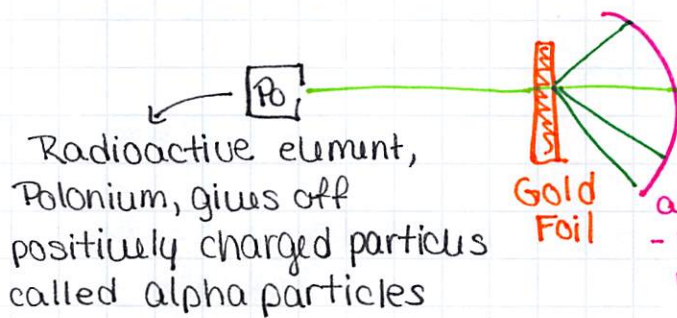 Po
Radioactive element,
Polonium, gives off
positively charged particles
called alpha particles
Gold
Foil
a
-